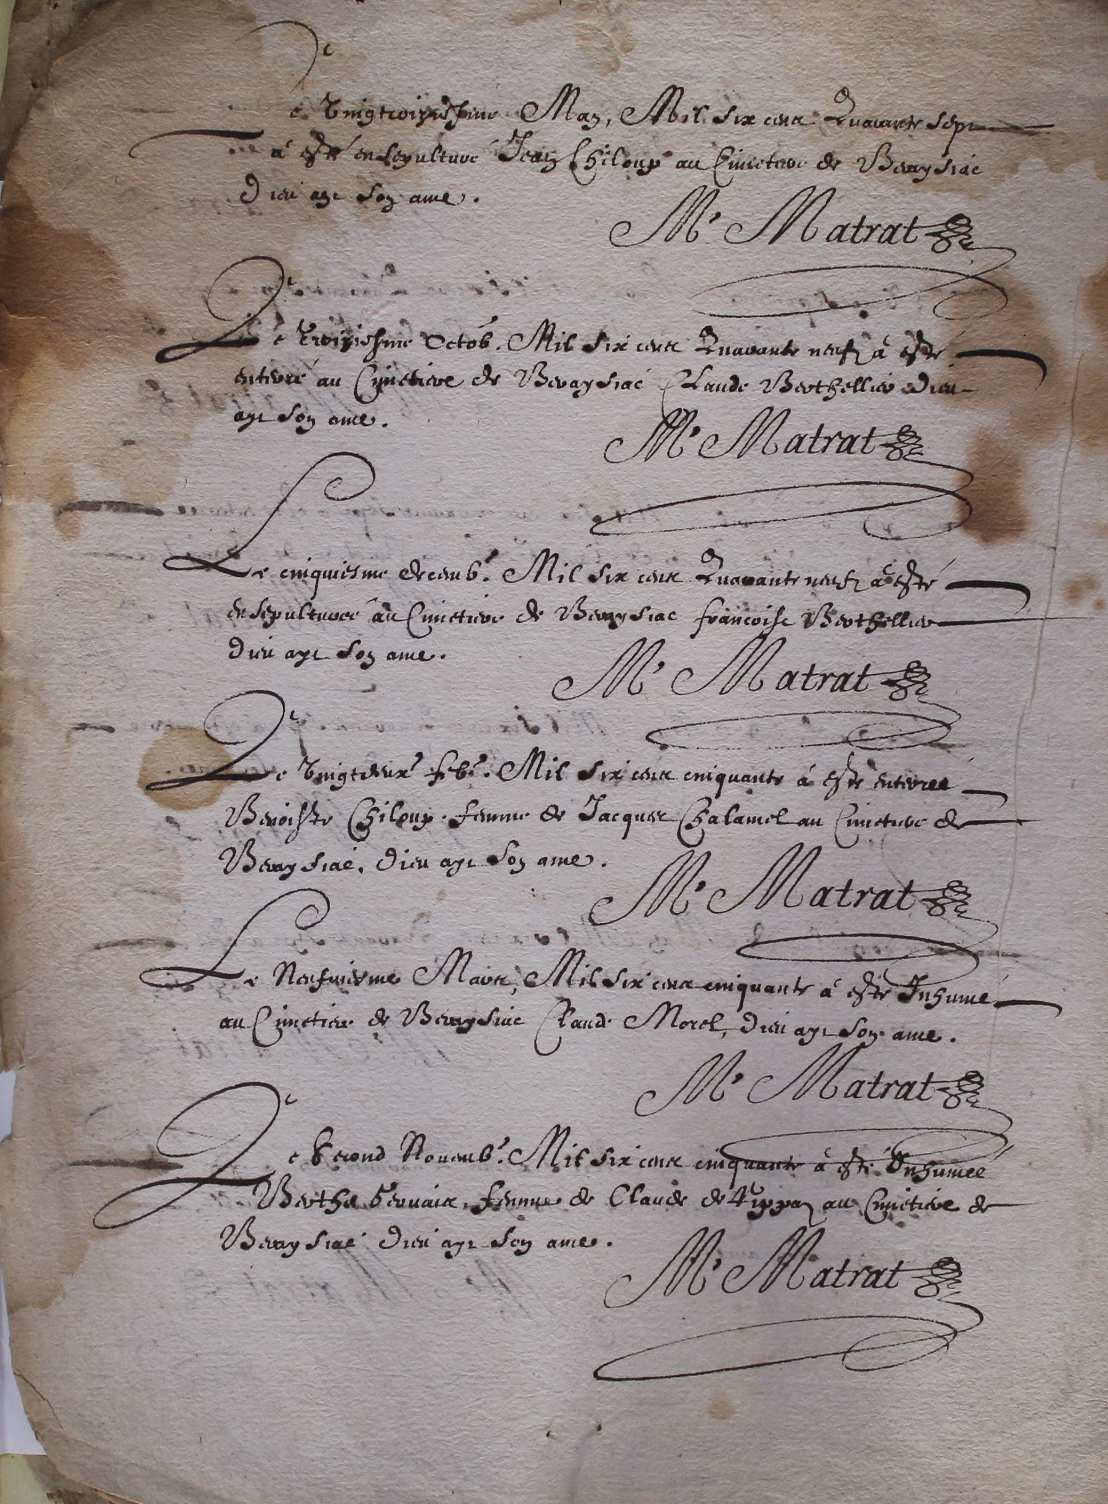 Le Vingtroiziesme May, Mil six cent Quarante sept
a esté ensepulturé Jean Chiloup au Cimetiere de Beraysiac
Dieu aye son ame.
Mr Matrat
Le Troiziesme Octob. Mil six cent Quarante neufz a esté
enterré au Cymetiere de Beraysiac Claude Berthellier Dieu
aye son ame.
Mr Matrat
Le cinquiesme decemb. Mil six cent Quarante neufz a esté
ensepulturee au Cimetiere de Beraysiac francoise Berthellier
Dieu aye son ame.
Mr Matrat
Le Vingtdeuxe feb. Mil six cent cinquante a esté enterreé
Benoiste Chiloup femme de Jacques Chalamel au Cimetiere de
Beraysiac, Dieu aye son ame.
Mr Matrat
Le Neufviesme Mars, Mil six cent cinquante a esté Inhumé
au Cimetiere de Beraysiac Claude Morel, Dieu aye son ame.
Mr Matrat
Le Second Novemb. Mil six cent cinquante a esté Inhumeé
Berthe Gervais, femme de Claude de au Cymetiere de
Beraysiac Dieu aye son ame.
Mr Matrat